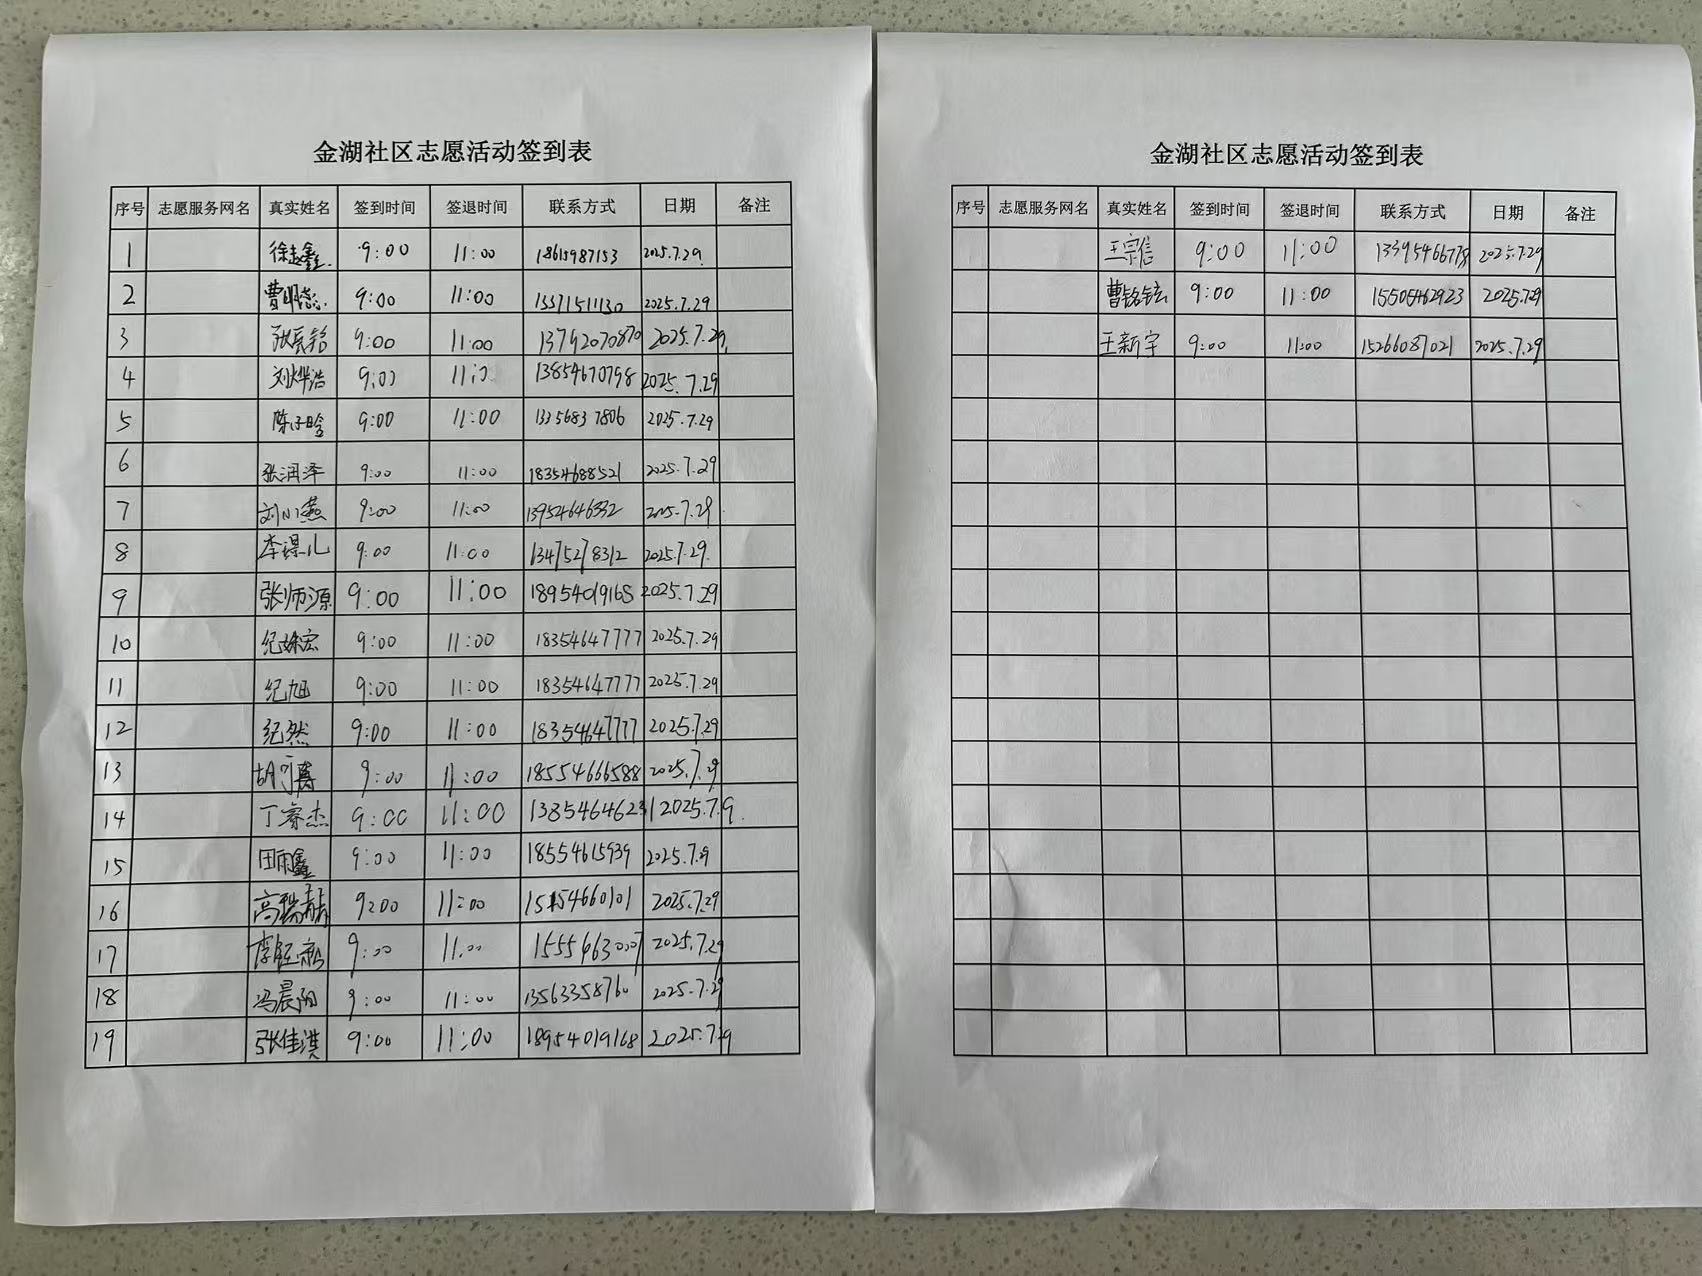 金湖社区志愿活动签到表
序号 志愿服务网名 真实姓名 签到时间 签退时间 联系方式 日期 备注
1 徐赵鑫 9:00 11:00 18615987153 2025.7.29
2 曹明 9:00 11:00 13371511130 2025.7.29
3 张辰铭 9:00 11:00 13792070870 2025.7.29
4 刘烨浩 9:00 11:0 13854670798 2025.7.29
5 陈子晗 9:00 11:00 13356837806 2025.7.29
6 张润泽 9:00 11:00 18354688521 2025.7.29
7 刘小燕 9:00 11:00 13954646332 2025.7.29
8 李儿 9:00 11:00 13475278312 2025.7.29
9 张师源 9:00 11:00 18954019168 2025.7.29
10 纪姝宏 9:00 11:00 18354647777 2025.7.29
11 纪旭 9:00 11:00 18354647777 2025.7.29
12 纪然 9:00 11:00 18354647777 2025.7.29
13 胡可 9:00 11:00 18554666588 2025.7.29
14 丁睿杰 9:00 11:00 13854646231 2025.7.29
15 田雨鑫 9:00 11:00 18554615939 2025.7.29
16 高瑞喆 9:00 11:00 15154660101 2025.7.29
17 李 9:00 11:00 15554630007 2025.7.29
18 冯晨阳 9:00 11:00 13563358760 2025.7.29
19 张佳淇 9:00 11:00 18954019168 2025.7.29
金湖社区志愿活动签到表
序号 志愿服务网名 真实姓名 签到时间 签退时间 联系方式 日期 备注
王宗信 9:00 11:00 13395466778 2025.7.29
曹铭铉 9:00 11:00 15505462923 2025.7.29
王新宇 9:00 11:00 15266087021 2025.7.29